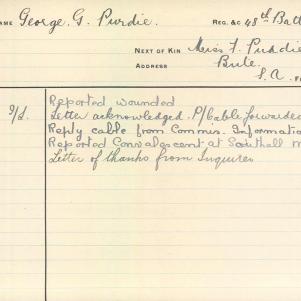 NAME George. G. Purdie. REG. &c 48th Batt
NEXT OF KIN Miss F. Purdie
ADDRESS Bute.
S.A.
Reported wounded
Letter acknowledged. P/Cable forwarded
Reply cable from Commis. Informatio
Reported Convalescent at Southall
Letter of thanks from Inquirer